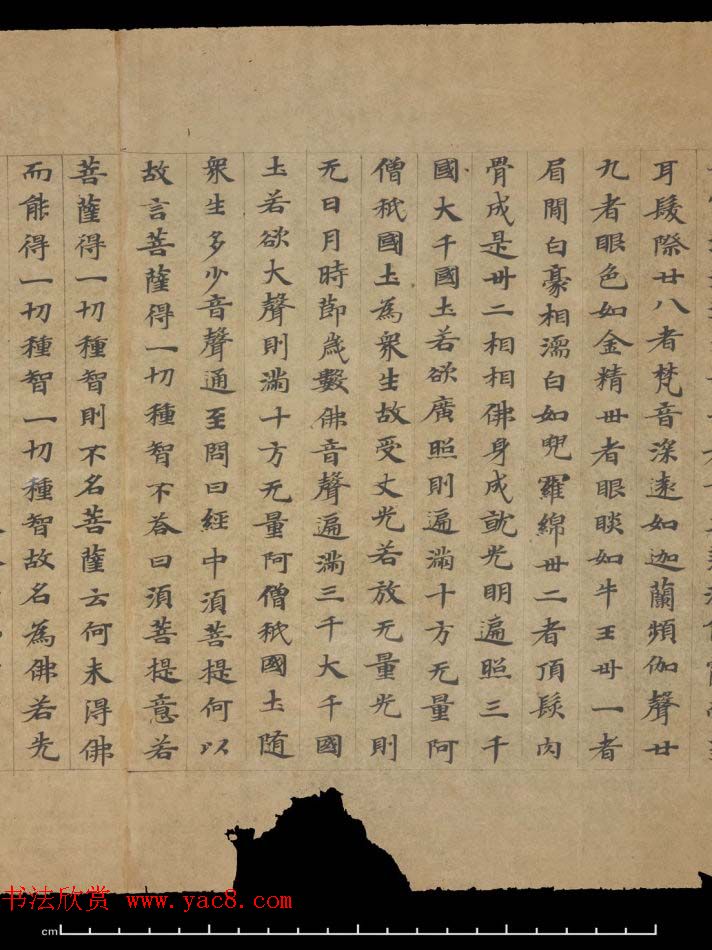 耳髮際廿八者梵音深遠如迦蘭頻伽聲廿
九者眼色如金精丗者眼睒如牛王丗一者
眉間白豪相濡白如兜羅綿丗二者頂髮肉
骨成是丗二相相佛身成就光明遍照三千
國大千國土若欲廣照則遍滿十方无量阿
僧秖國土為衆生故受丈光若放无量光則
无日月時節歲數佛音聲遍滿三千大千國
土若欲大聲則滿十方无量阿僧秖國土随
衆生多少音聲通至問曰經中湏菩提何以
故言菩薩得一切種智不荅曰湏菩提意若
菩薩得一切種智則不名菩薩云何未得佛
而能得一切種智一切種智故名為佛若先
书法欣赏 www.yac8.com
cm